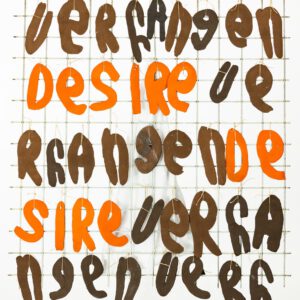 VERhANgEN
DESIRE VE
RhANgENDE
SIRE VERhA
NgENVERh